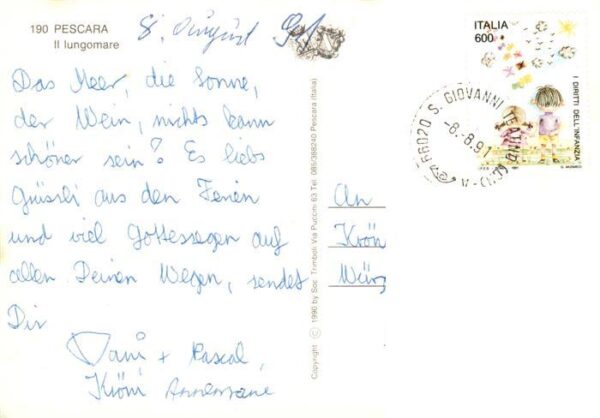 190 PESCARA
Il lungomare
8. August
Das Meer, die Sonne,
der Wein, nichts kann
schöner sein? Es liebs
Grüssli aus den Ferien
und viel Gottessegen auf
allen Deinen Wegen, sendet
Dir
Dani + Pascal,
Copyright © 1990 by Soc. Trimboli Via Puccini 63 Tel. 085/388240 Pescara (Italia)
ITALIA
600
I DIRITTI DELL'INFANZIA
66020 S. GIOVANNI TEATINO (CH)
-8.8.91
An